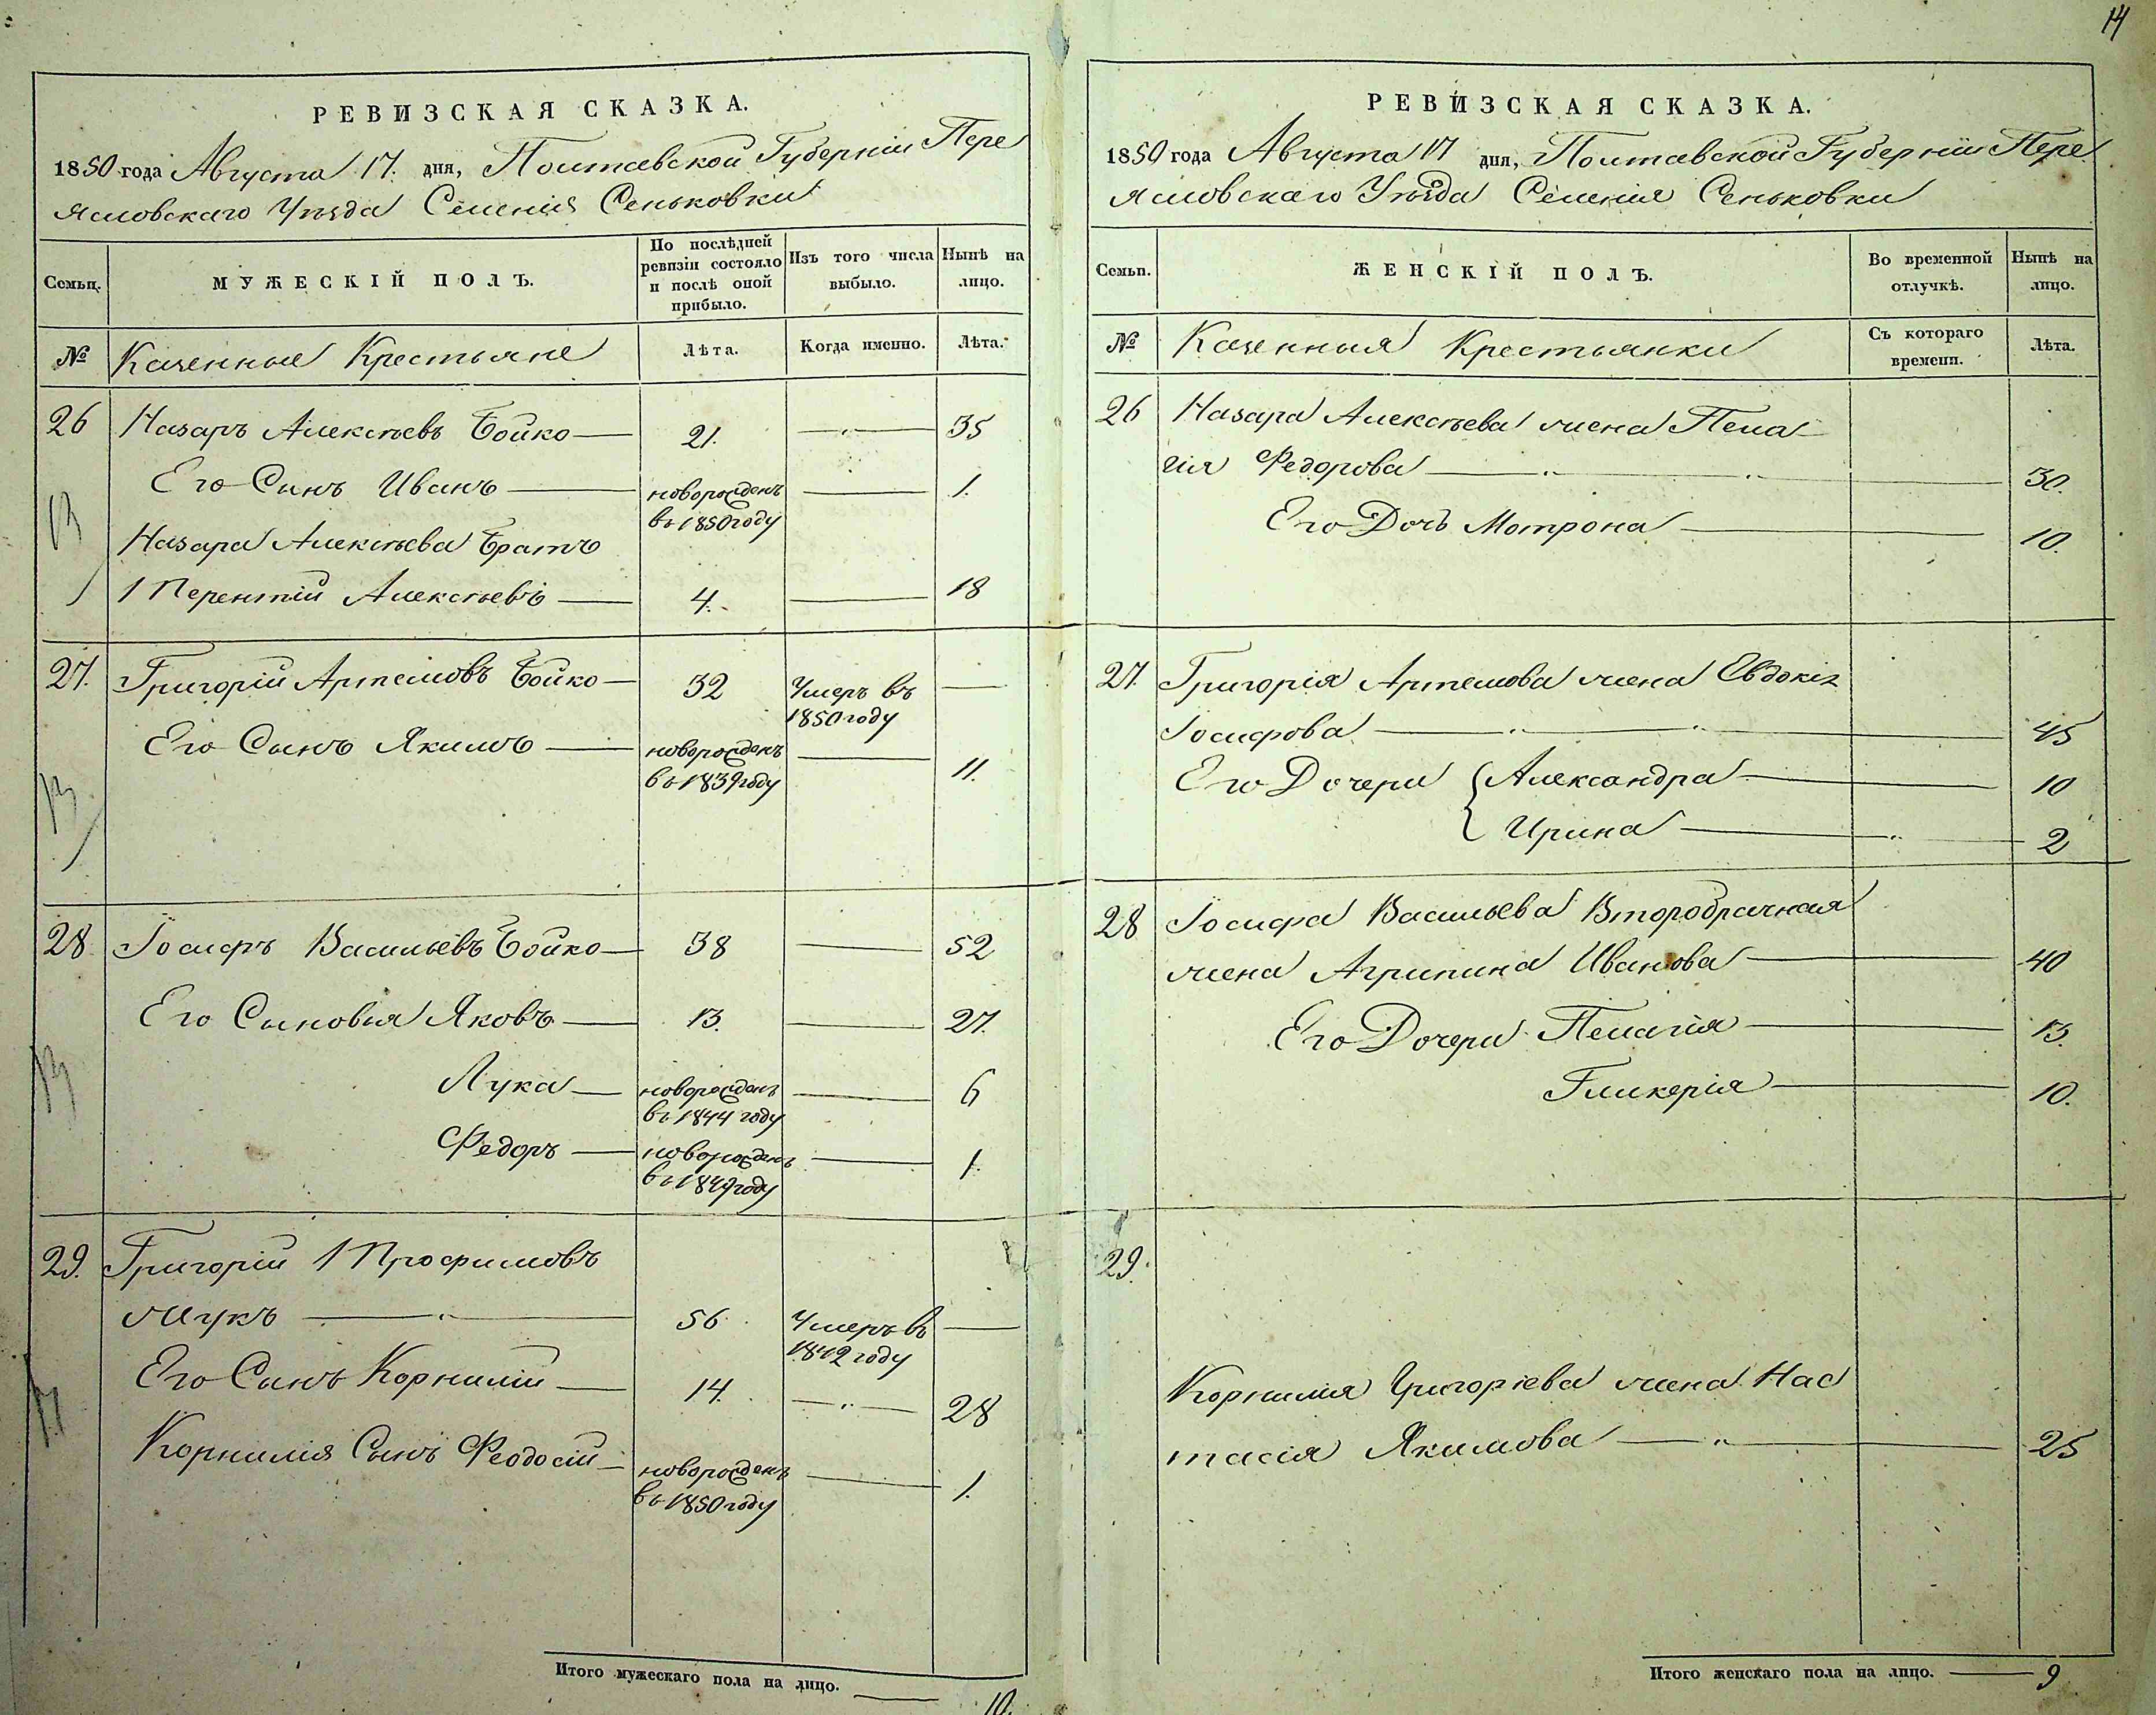 14
РЕВИЗСКАЯ СКАЗКА.
1850 года Августа 17. дня, Полтавской Губерніи Пере
яславскаго Уѣзда Селенія Сеньковки
Семьи.
МУЖЕСКІЙ ПОЛЪ.
По послѣдней
ревизіи состояло
и послѣ оной
прибыло.
Изъ того числа
выбыло.
Нынѣ на
лицо.
№ Казенные Крестьяне Лѣта. Когда именно. Лѣта.
26 Назаръ Алексѣевъ Бойко — 21. — 35
Его Сынъ Иванъ — новорожденъ — 1.
въ 1850 году
Назара Алексѣева Братъ
Терентій Алексѣевъ — 4. — 18
27. Григорій Артемовъ Бойко — 32 Умеръ въ —
1850 году
Его Сынъ Якимъ — новорожденъ — 11.
въ 1839 году
28. Іосифъ Васильевъ Бойко — 38 — 52
Его Сыновья Яковъ — 13. — 27.
Лука — новорожденъ — 6
въ 1844 году
Федоръ — новорожденъ — 1.
въ 1849 году
29. Григорій Трофимовъ
Жукъ — 56. Умеръ въ —
1842 году
Его Сынъ Корнилій — 14. — 28
Корнилія Сынъ Феодосій — новорожденъ — 1.
въ 1850 году
Итого мужескаго пола на лицо. — 10.
РЕВИЗСКАЯ СКАЗКА.
1850 года Августа 17 дня, Полтавской Губерніи Пере
яславскаго Уѣзда Селенія Сеньковки
Семьи.
ЖЕНСКІЙ ПОЛЪ.
Во временной
отлучкѣ.
Нынѣ на
лицо.
№ Казенныя Крестьянки
Съ котораго
времени.
Лѣта.
26 Назара Алексѣева жена Пела
гія Федорова — 30.
Его Дочь Мотрона — 10.
27. Григорія Артемова жена Евдокія
Іосифова — 45
Его Дочери { Александра — 10
Ирина — 2
28 Іосифа Васильева Второбрачная
жена Агрипина Иванова — 40
Его Дочери Пелагія — 13.
Гликерія — 10.
29.
Корнилія Григоріева жена Нас
тасія Якимова — 25
Итого женскаго пола на лицо. — 9